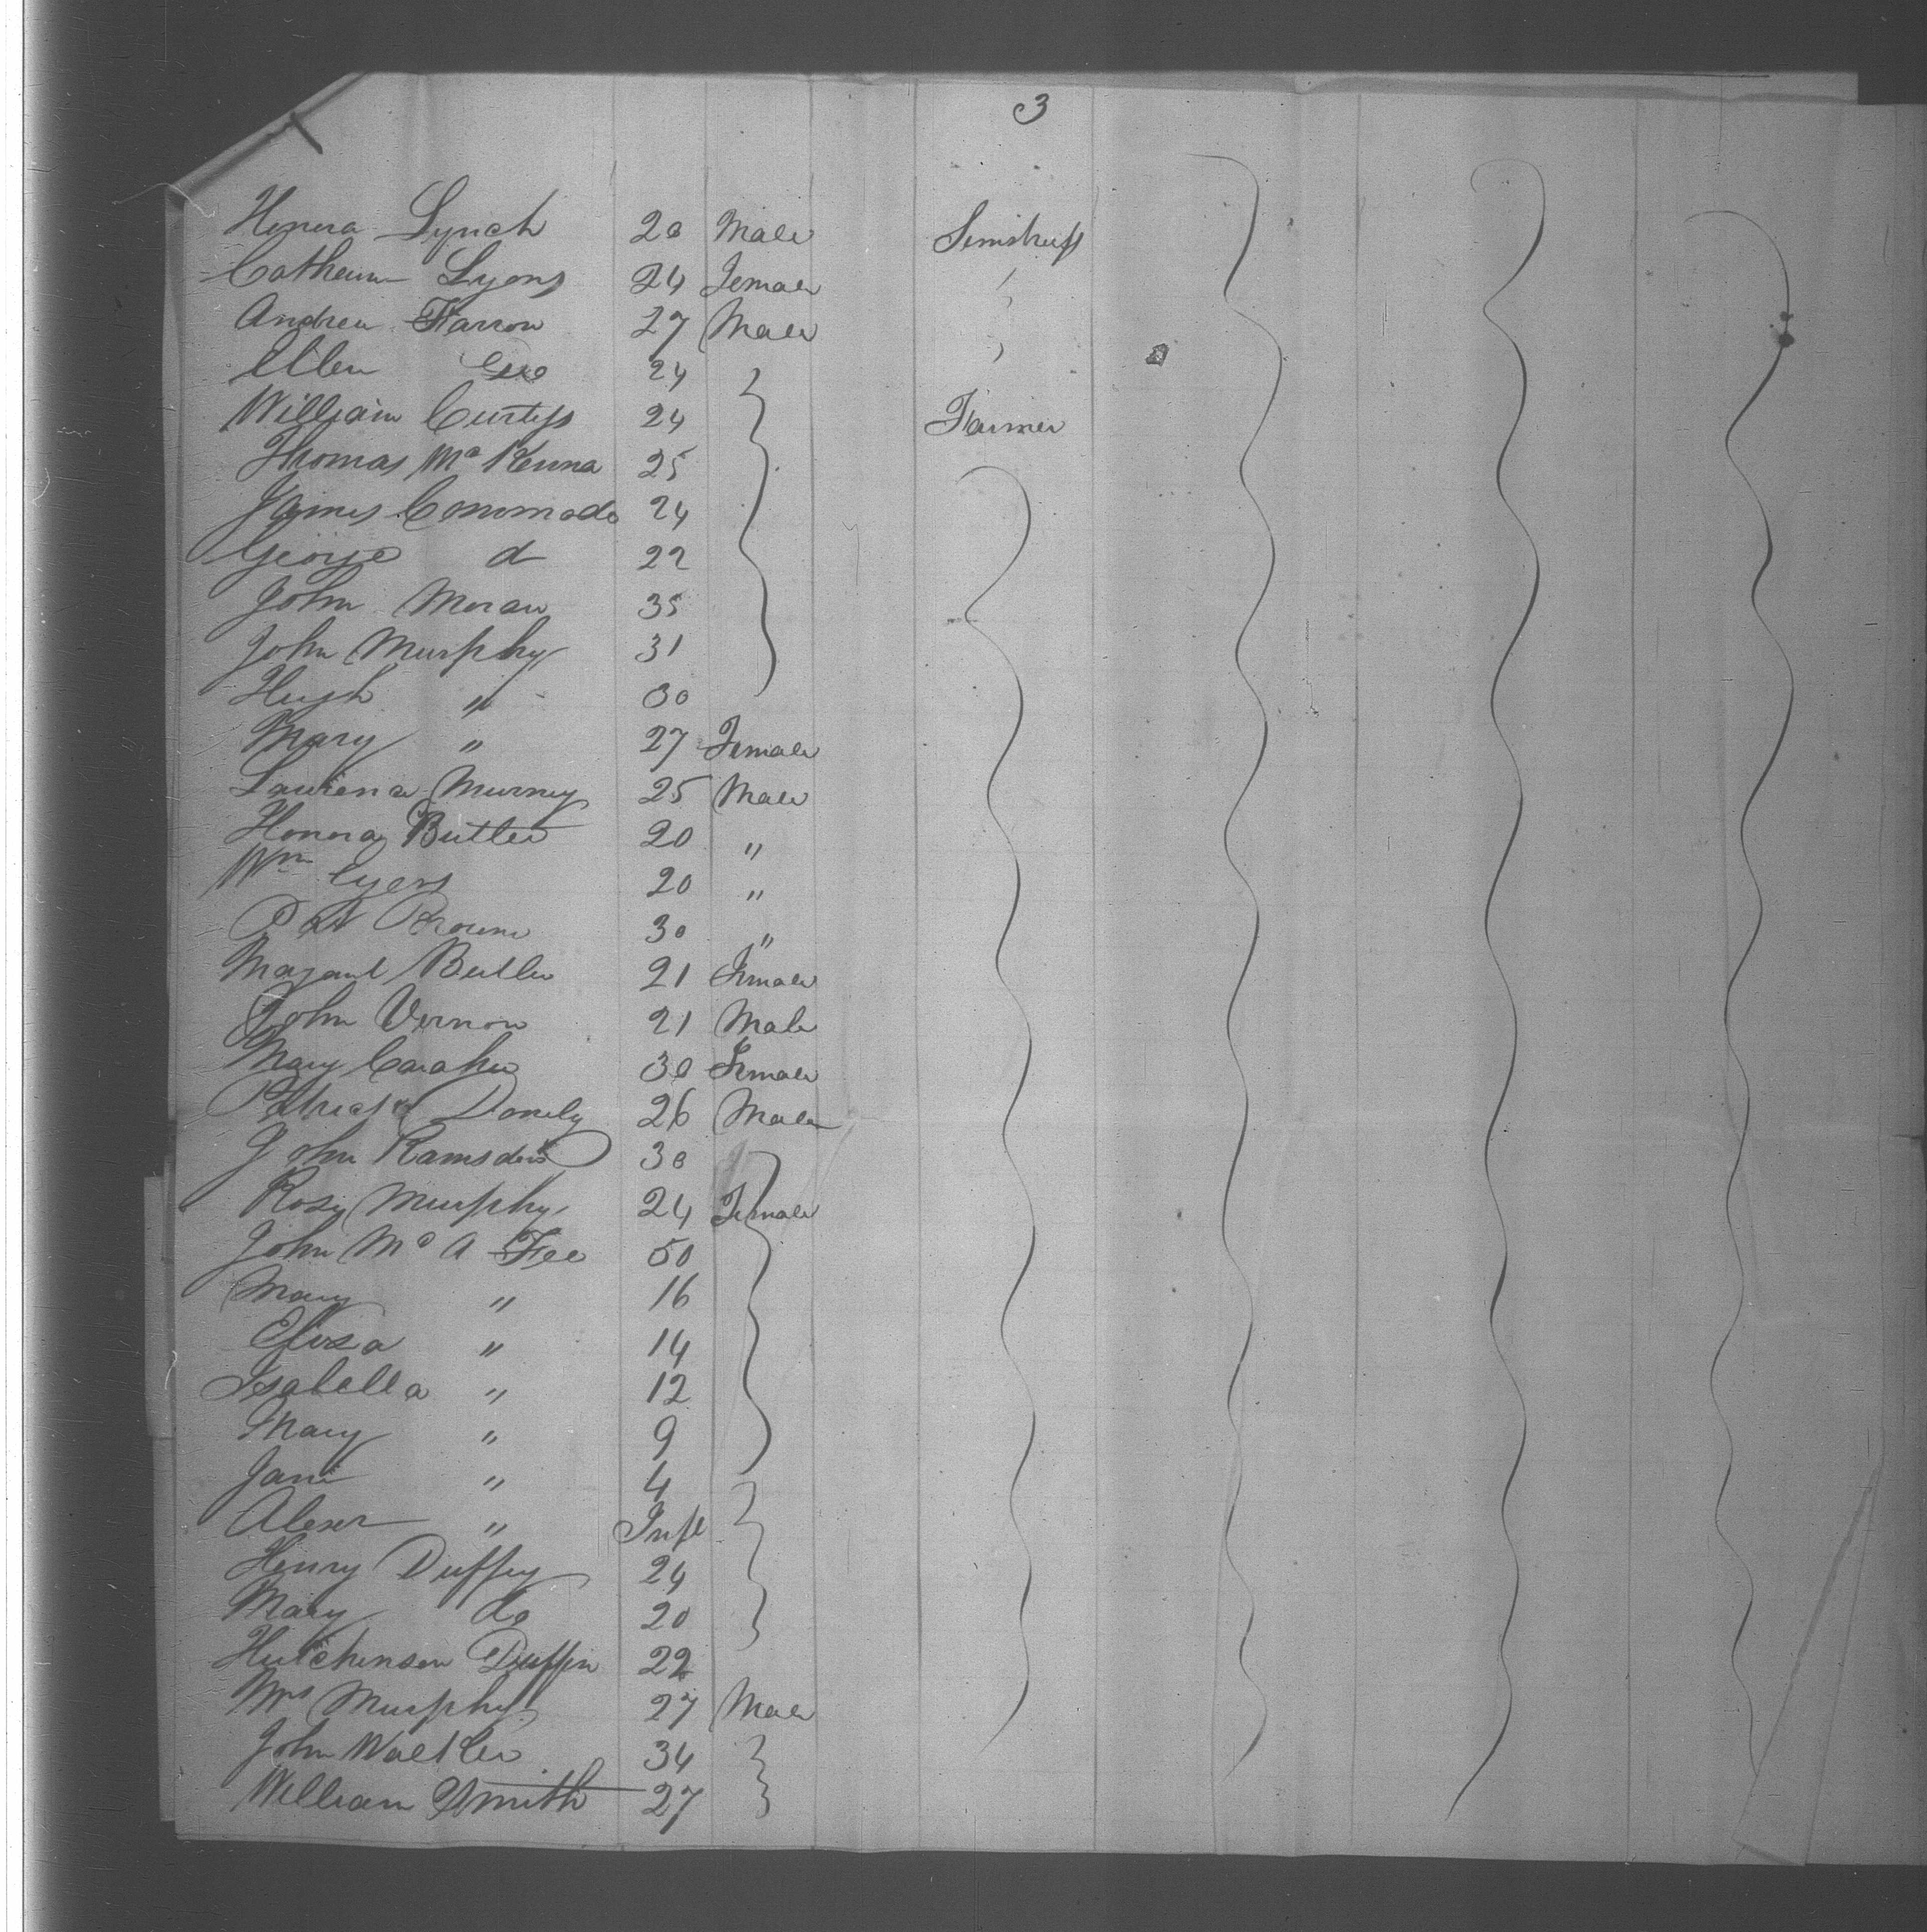 3
Honora Lynch 20 Male Semstress
Catherine Lyons 24 Female "
Andrew Farron 27 Male "
Ellen do 24 "
William Curtiss 24 Farmer
Thomas McKenna 25
James 24
George d 22
John Moran 35
John Murphy 31
Hugh " 30
Mary " 27 Female
Murney 25 Male
Honora Butler 20 "
Wm 20 "
Pat Brown 30 "
Margaret Butler 21 Female
John Vernon 21 Male
Mary Caraher 30 Female
Patrick Donely 26 Male
John Ramsden 30
Rosy Murphy 24 Female
John Mc A Fee 50
Mary " 16
Eliza " 14
Isabella " 12
Mary " 9
Jane " 4
Alexr " Inft
Henry Duffey 24
Mary do 20
Hutchinson Duffin 22
Mrs Murphy 27 Male
John Walker 34
William Smith 27